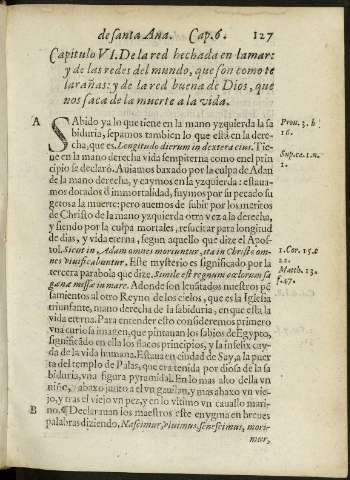 de santa Ana. Cap. 6. 127
Capitulo VI. De la red hechada en la mar:
y de las redes del mundo, que son como te
larañas: y de la red buena de Dios, que
nos saca de la muerte a la vida.
A SAbido ya lo que tiene en la mano yzquierda la sa Prou. 3. b
biduria, sepamos tambien lo que està en la dere- 16.
cha, que es. Longitudo dierum in dextera eius. Tie-
ne en la mano derecha vida sempiterna como en el prin Sup.ca.1.n.
cipio se declarò. Auiamos baxado por la culpa de Adan 2.
de la mano derecha, y caymos en la yzquierda: estaua-
mos dorados d immortalidad, fuymos por su pecado su
getos a la muerte: pero auemos de subir por los meritos
de Christo de la mano yzquierda otra vez a la derecha,
y siendo por la culpa mortales, resucitar para longitud
de dias, y vida eterna, segun aquello que dize el Apos-
tol. Sicut in Adam omnes moriuntur, ita in Christo om- 1. Cor. 15.c
nes viuificabuntur. Este mysterio es significado por la 22.
tercera parabola que dize. Simile est regnum cœlorum sa Matth. 13.
genæ missæ in mare. Adonde son leuãtados nuestros pẽ f.47.
samientos al otro Reyno de los cielos, que es la Iglesia
triunfante, mano derecha de la sabiduria, en que està la
vida eterna. Para entender esto consideremos primero
vna curiosa imagen, que pintauan los sabios de Egypto,
significado en ella los flacos principios, y la infelix cay-
da de la vida humana. Estaua en ciudad de Say, a la puer
ta del templo de Palas, que era tenida por diosa de la sa
biduria, vna figura pyramidal. En lo mas alto della vn
niño, abaxo junto a el vn gauilan, y mas abaxo vn vie-
jo, y tras el viejo vn pez, y en lo vltimo vn cauallo mari-
B no. ¶ Declarauan los maestros este enygma en breues
palabras diziendo, Nascimur, viuimus, senescimus, mori-
mur,